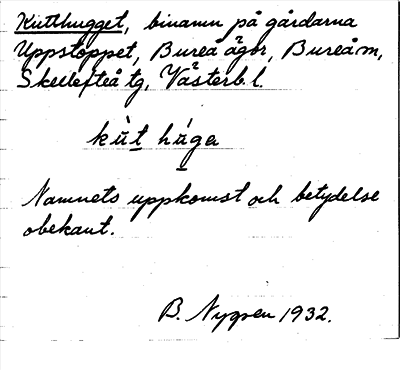 Kutthugget, binamn på gårdarna
Uppstoppet, Bureå ägor, Bureå m,
Skellefteå tg, Västerb. l.
kùt húga
Namnets uppkomst och betydelse
obekant.
B. Nygren 1932.